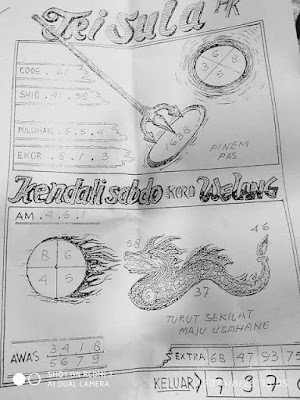 Tri Sula HK
CODE . 6 /
SHIO . 41 . 38
PULUHAN . 6 . 5 . 4
EKOR . 8 . 1 . 3
3 6
5 8
1 6 8
PINEM
PAS
Kendali sabdo KORO Welang
AM . 4 . 6 . 1
8 6
4 5
38
46
37
TURUT SEKILAT
MAJU USAHANE
AWAS 3 4 1 8
5 6 7 9
EXTRA 68 47 93 75
KELUAR 7 9 7 0
SHOT ON REDMI 7
AI DUAL CAMERA